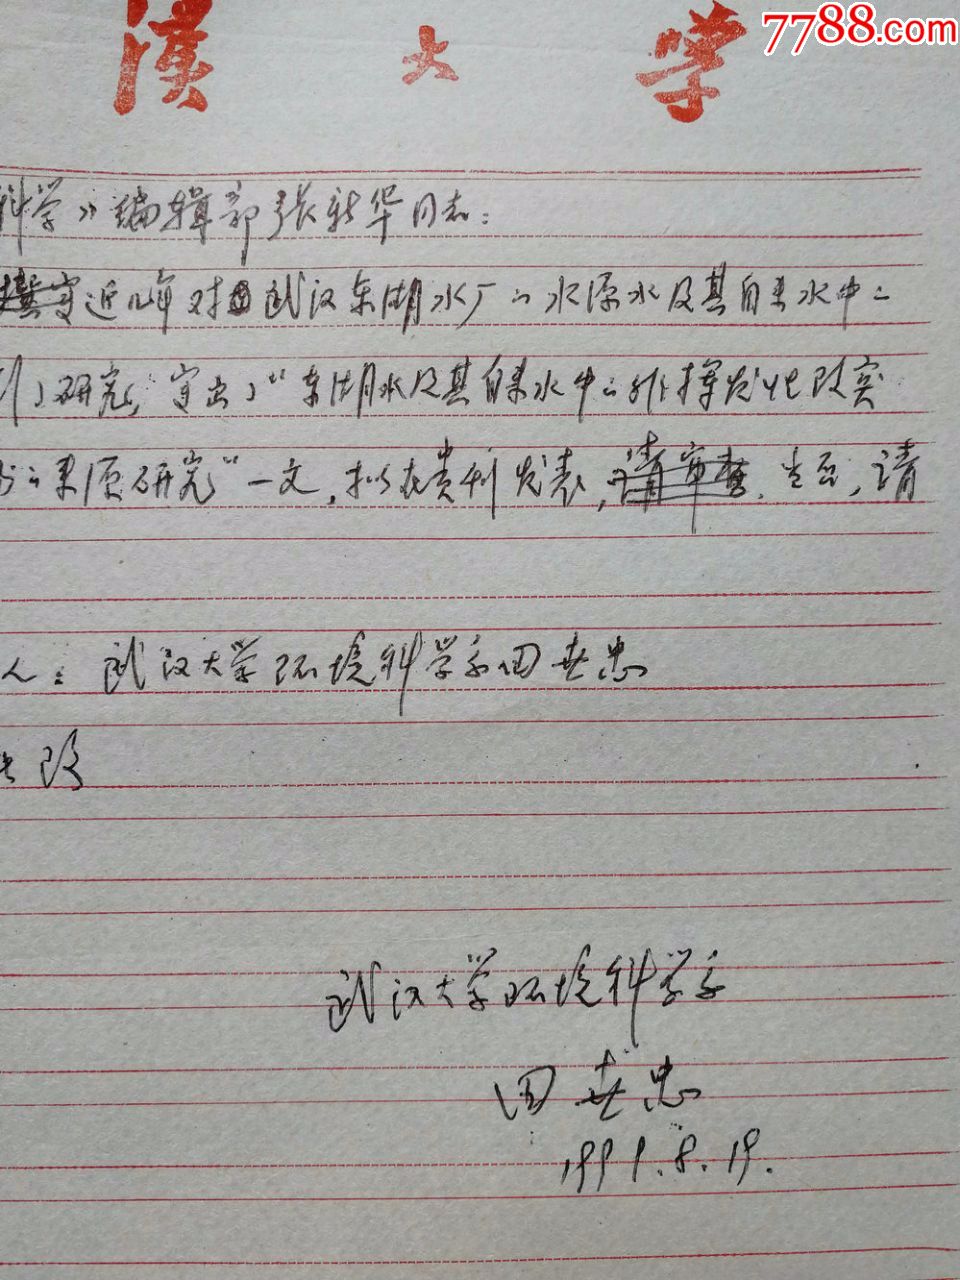 7788.com
漢大学
科学》编辑部张新华同志：
近几年对武汉东湖水厂的水源水及其自来水中的
了研究，写出了“东湖水及其自来水中的非挥发性致突
的来源研究”一文，拟在贵刊发表，请审查。当否，请
人：武汉大学环境科学系田世忠
致
武汉大学环境科学系
田世忠
1991.8.19.